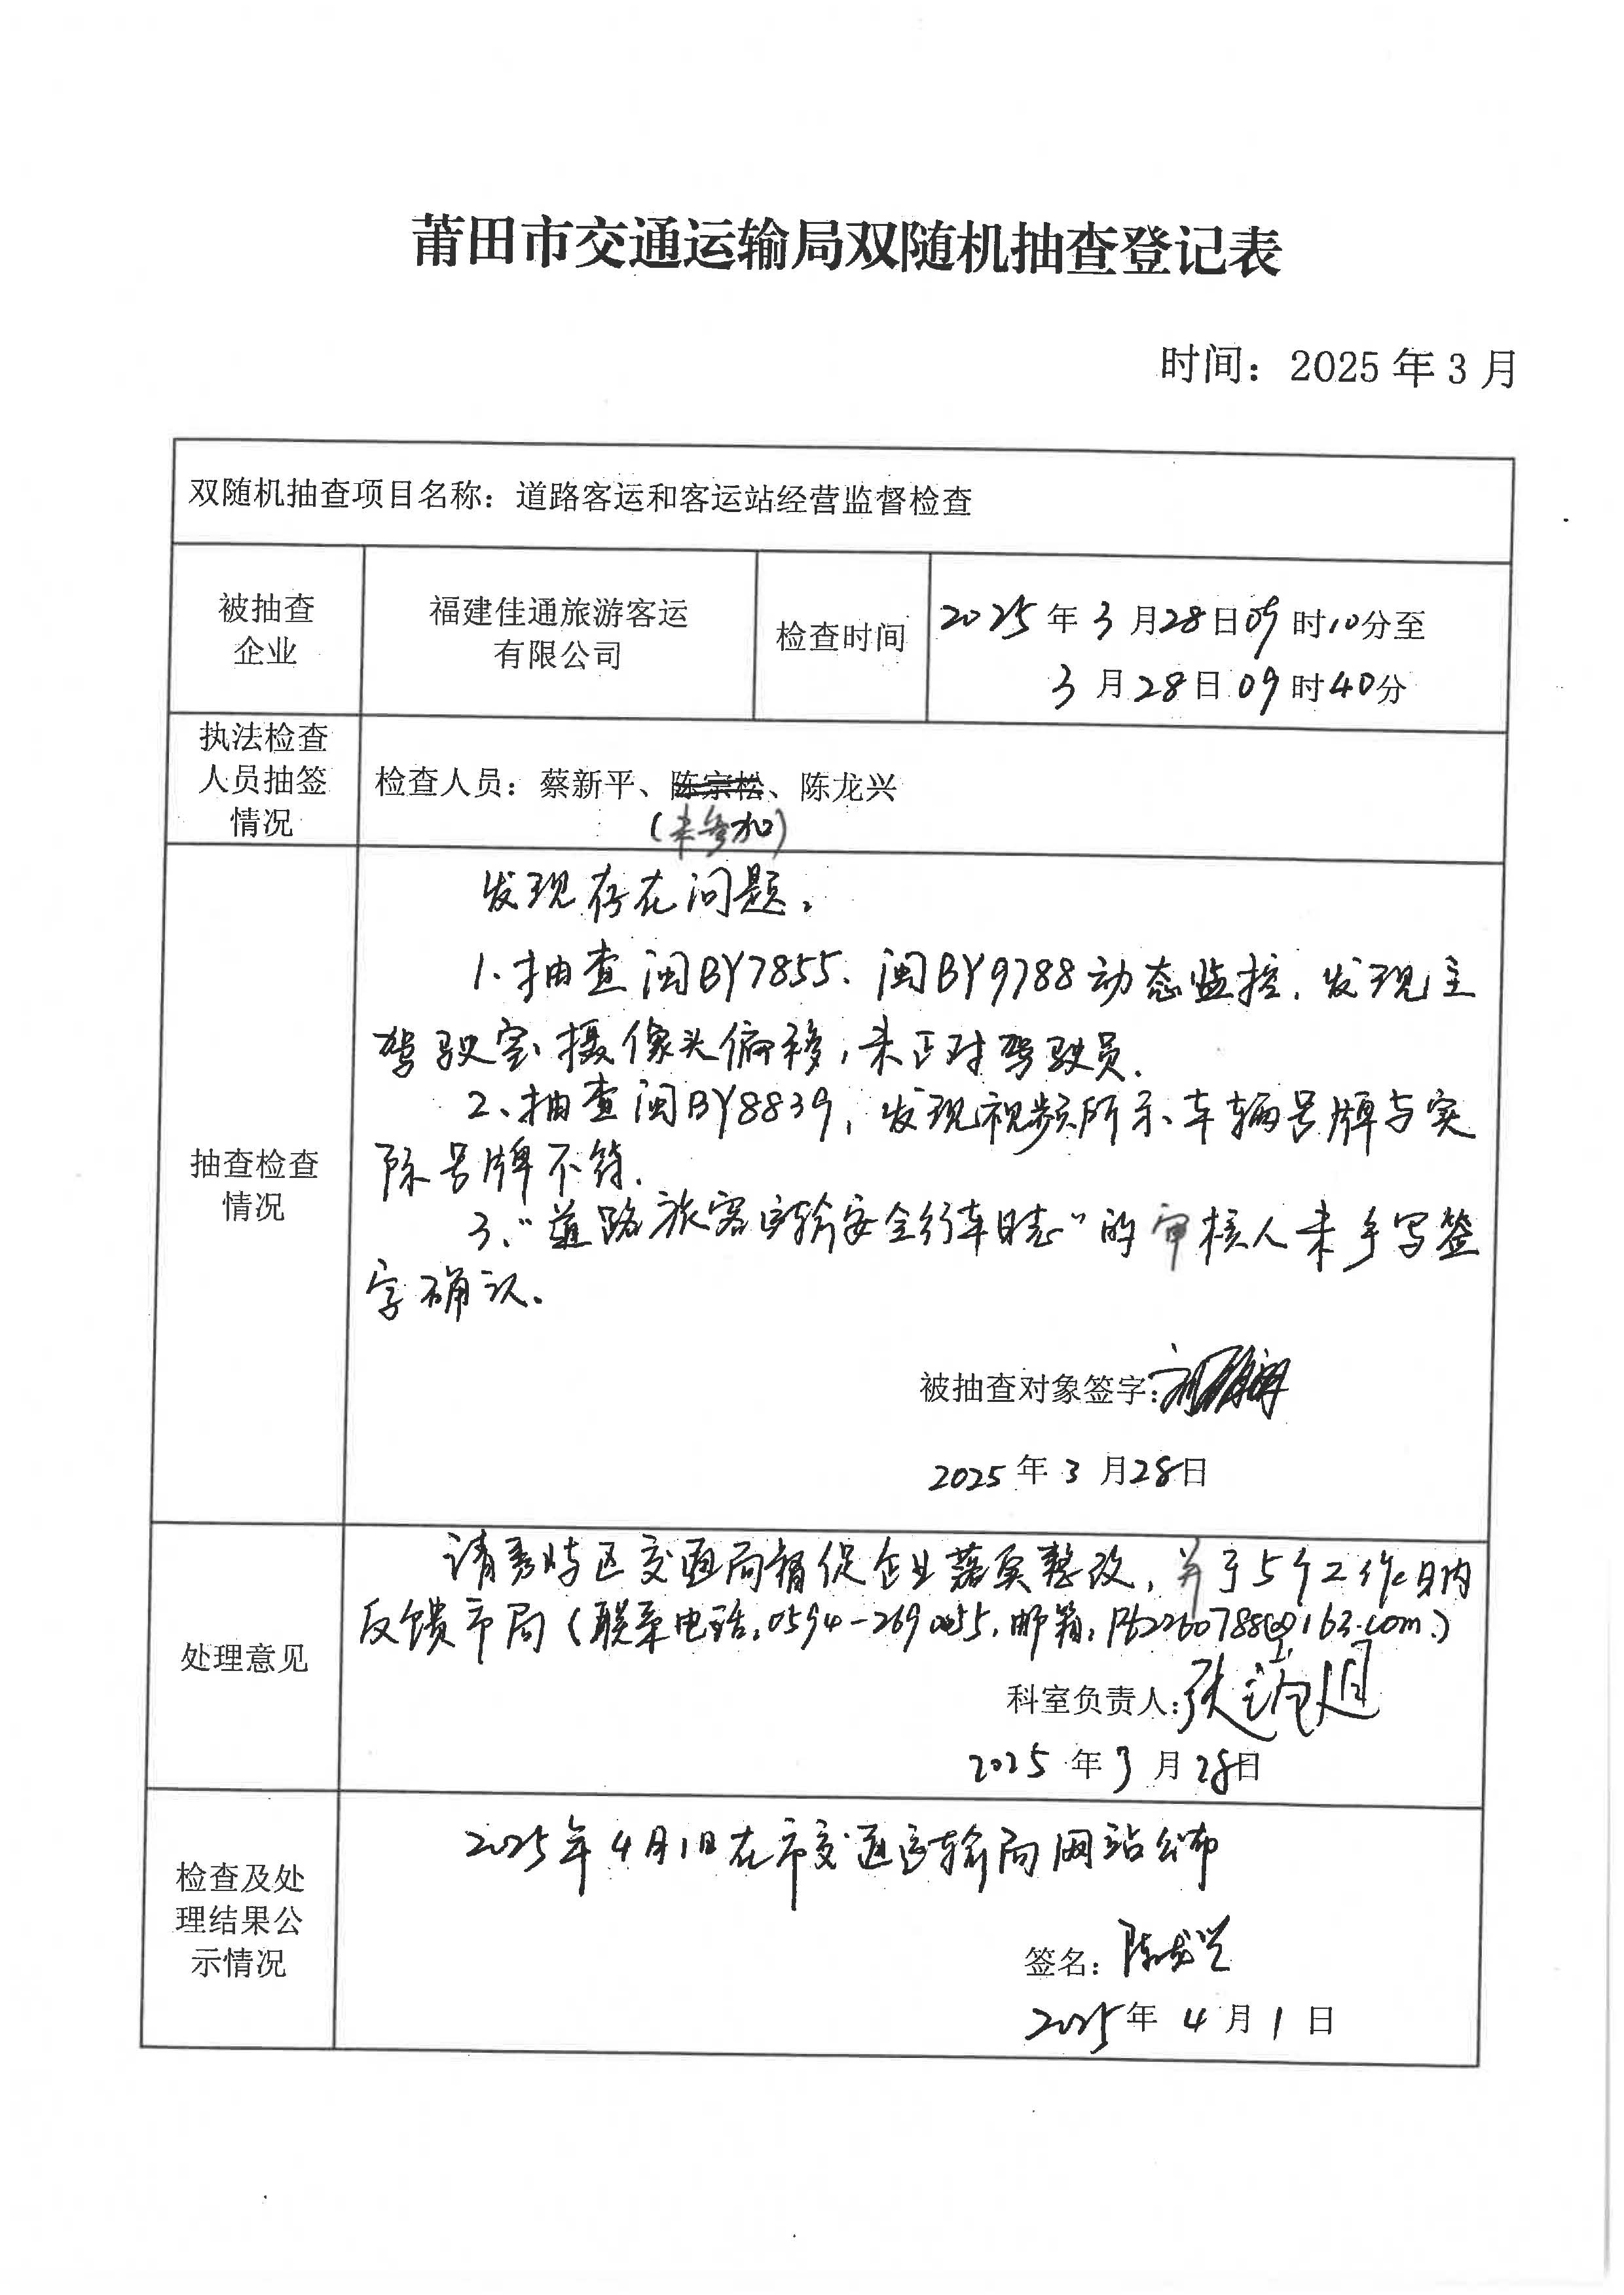 莆田市交通运输局双随机抽查登记表
时间：2025年3月
双随机抽查项目名称：道路客运和客运站经营监督检查
被抽查
企业
福建佳通旅游客运
有限公司
检查时间
2025年3月28日09时10分至
3月28日09时40分
执法检查
人员抽签
情况
检查人员：蔡新平、陈宗松、陈龙兴
（未参加）
抽查检查
情况
发现存在问题：
1、抽查闽BY7855、闽BY9788动态监控，发现主
驾驶室摄像头偏移，未正对驾驶员.
2、抽查闽BY8839，发现视频所示车辆号牌与实
际号牌不符.
3、“道路旅客运输安全行车日志”的审核人未手写签
字确认.
被抽查对象签字：
2025年3月28日
处理意见
请秀屿区交通局督促企业落实整改，并于5个工作日内
反馈市局（联系电话：0594-269 邮箱： @163.com.）
科室负责人：张
2025年3月28日
检查及处
理结果公
示情况
2025年4月1日在市交通运输局网站公布
签名：陈龙兴
2025年4月1日